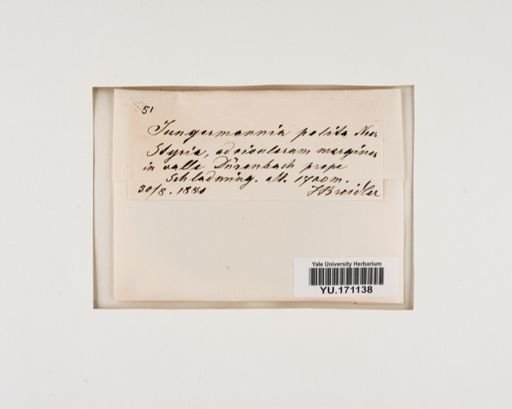 51
Jungermannia polita Nees
Styria, ad rivulorum margines
in valle Dürenbach prope
Schladming. alt. 1700 m.
30/8. 1880 JBreidler
Yale University Herbarium
YU.171138